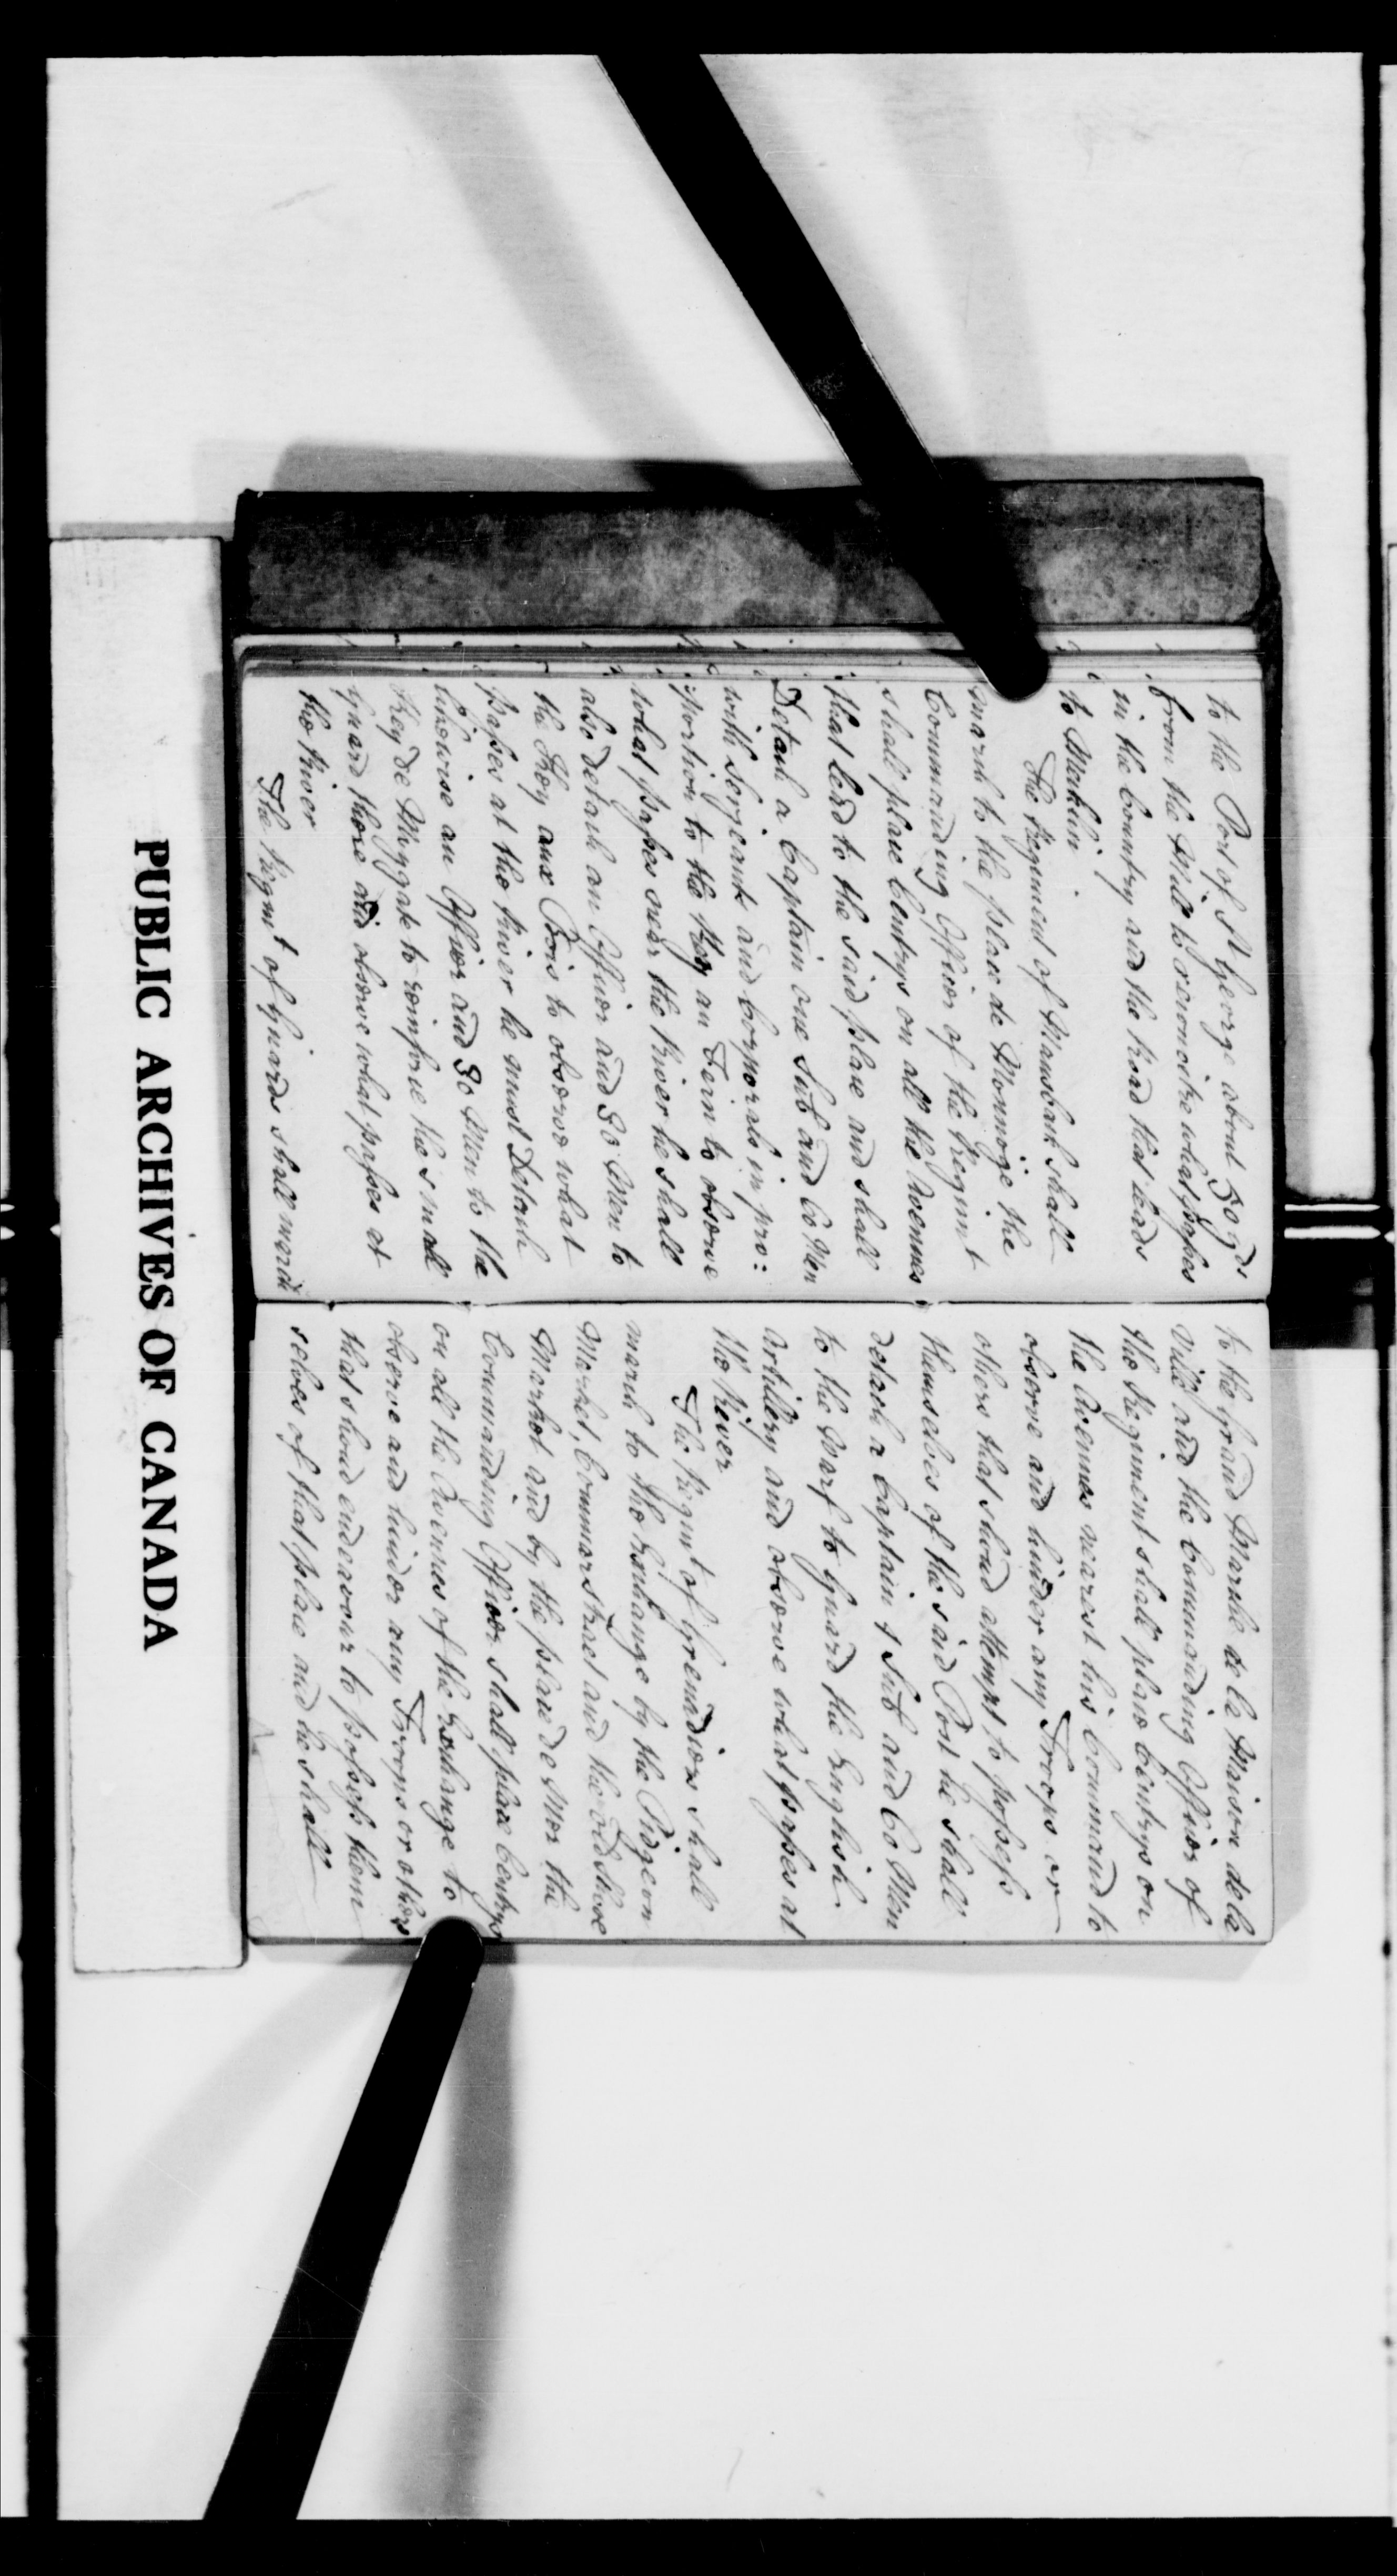 to the Port of St George about 50 yds
from the Mill to reconoitre what passes
in the Country and the Road that leads
to Mecklin
The Regiment of Mansbach shall
march to the place de Monnoije the
Commanding Officer of the Regimt
shall place Centrys on all the Avenues
that lead to the said place and shall
Detach a Captain one Sub and 60 Men
with Serjeants and Corporals in pro:
portion to the Key au Foin to observe
what passes over the River he shall
also detach an Officer and 30 Men to
the Key aux Bois to observe what
passes at the River he must Detach
likewise an Officer and 30 Men to the
Key de Meggate to reinforce the small
Guard there and observe what passes at
the River
The Regmt of Guards shall march
to the Grand Marche de la Maison de la
Ville and the Commanding Officer of
the Regiment shall place Centrys on
the Avenues nearest his Command to
observe and hinder any Troops or
others that shoud attempt to possess
themselves of the said Post he shall
detach a Captain 1 Sub and 60 Men
to the Warf to Guard the English
Artillery and observe what passes at
the River
The Regmt of Grenadiers shall
march to the Exchange by the Pidgeon
Market, Commerstraet and the old Shoe
Market and by the place de Mer the
Commanding Officer shall place Centrys
on all the Avenues of the Exchange to
observe and hinder any Troops or others
that shoud endeavour to possess them
selves of that place and he shall
PUBLIC ARCHIVES OF CANADA